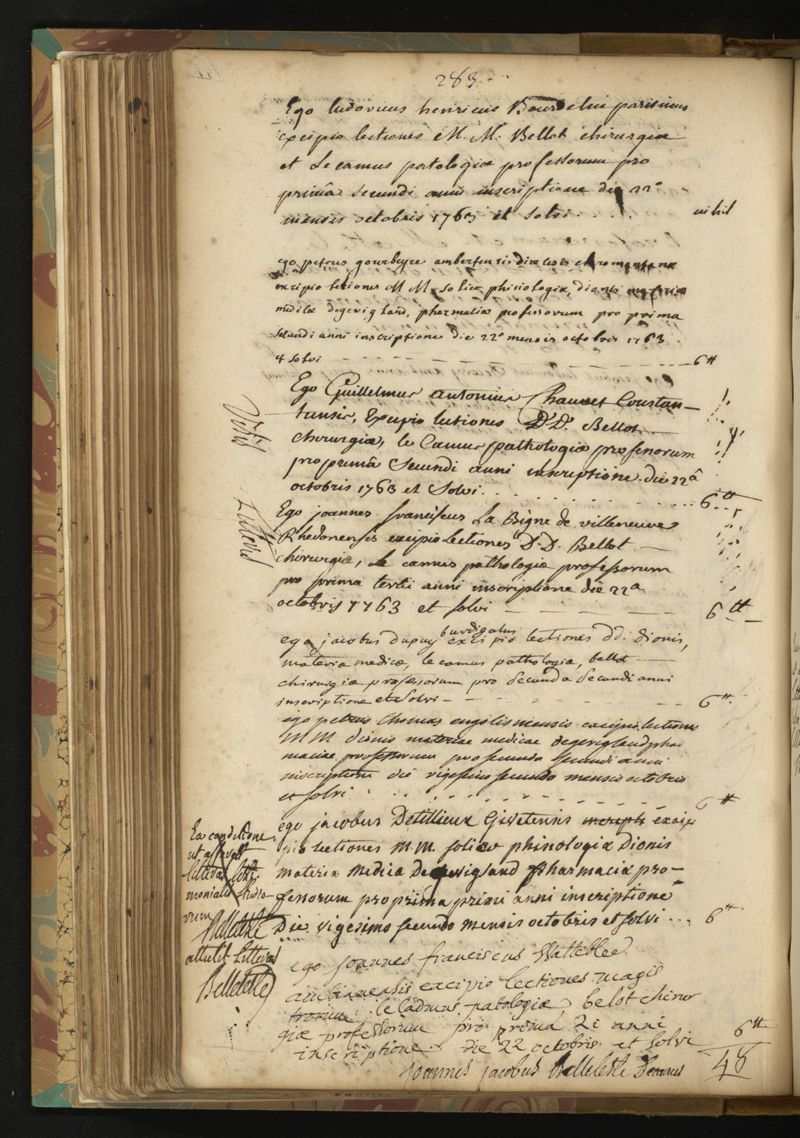 283
Ego ludovicus henricus Bourdelin parisinus
excipio lectiones M. M. Bellot chirurgiæ
et Le camus patologiæ professorum pro
primâ secundi anni inscriptione die 22ª
mensis octobris 1763 et solvi. nihil
ego petrus gourbeyre ambertensis claromontanæ
excipio lectiones M M solier phisiologiæ, dionis materiæ
medicæ degevigland, pharmaciæ professorum pro prima
secundi anni inscriptione die 22ª mensis octobris 1763
et solvi 6 ₶
Ego Guillelmus antonius Chauvet Constan-
tiensis, Excipio lectiones D'D. Bellot
chirurgiæ, le Camus pathologiæ professorum
pro primâ secundi anni inscriptione. die 22â
octobris 1763 et Solvi 6 ₶
Ego joannes franciscus La Bigne de villeneuve
Rhedonensis excipio Lectiones D D. Bellot
chirurgiæ, Le camus pathologiæ professorum
pro prima tertii anni inscriptione die 22ª
octobris 1763 et solvi 6 ₶
ego jacobus dupuy burdigalus excipio lectiones dd. dionis,
materiæ medicæ, le camus pathologiæ, bellot
chirurgiæ professorum pro secunda secundi anni
inscriptione et solvi 6 ₶
ego petrus thomas engolismensis excipio lectiones
M M dionis materiae medicae degevigland phar
maciae professorum pro secunda secundi anni
inscriptione die vigesimo secundo mensis octobris
et solvi 6 ₶
ego jacobus Detillieux Givetensis excip
pio lectiones M.M. solier phisiologiæ Dionis
materiæ Medicæ Degevigland Pharmaciæ pro-
fessorum pro prima primi anni inscriptione
Die vigesimo secundo mensis octobris et solvi 6 ₶
Ea conditione
ut afferat
litteras testi
moniales studio-
rum
Belleteste
attulit litteras
Belleteste
ego joannes franciscus Wattebled
ambianensis excipio lectiones magis
trorum le Cadmus patologiæ, belot chirur
giæ professorum pro prima 2i anni
inscriptione die 22 octobris et solvi 6 ₶
joannes jacobus Belleteste Decanus 48